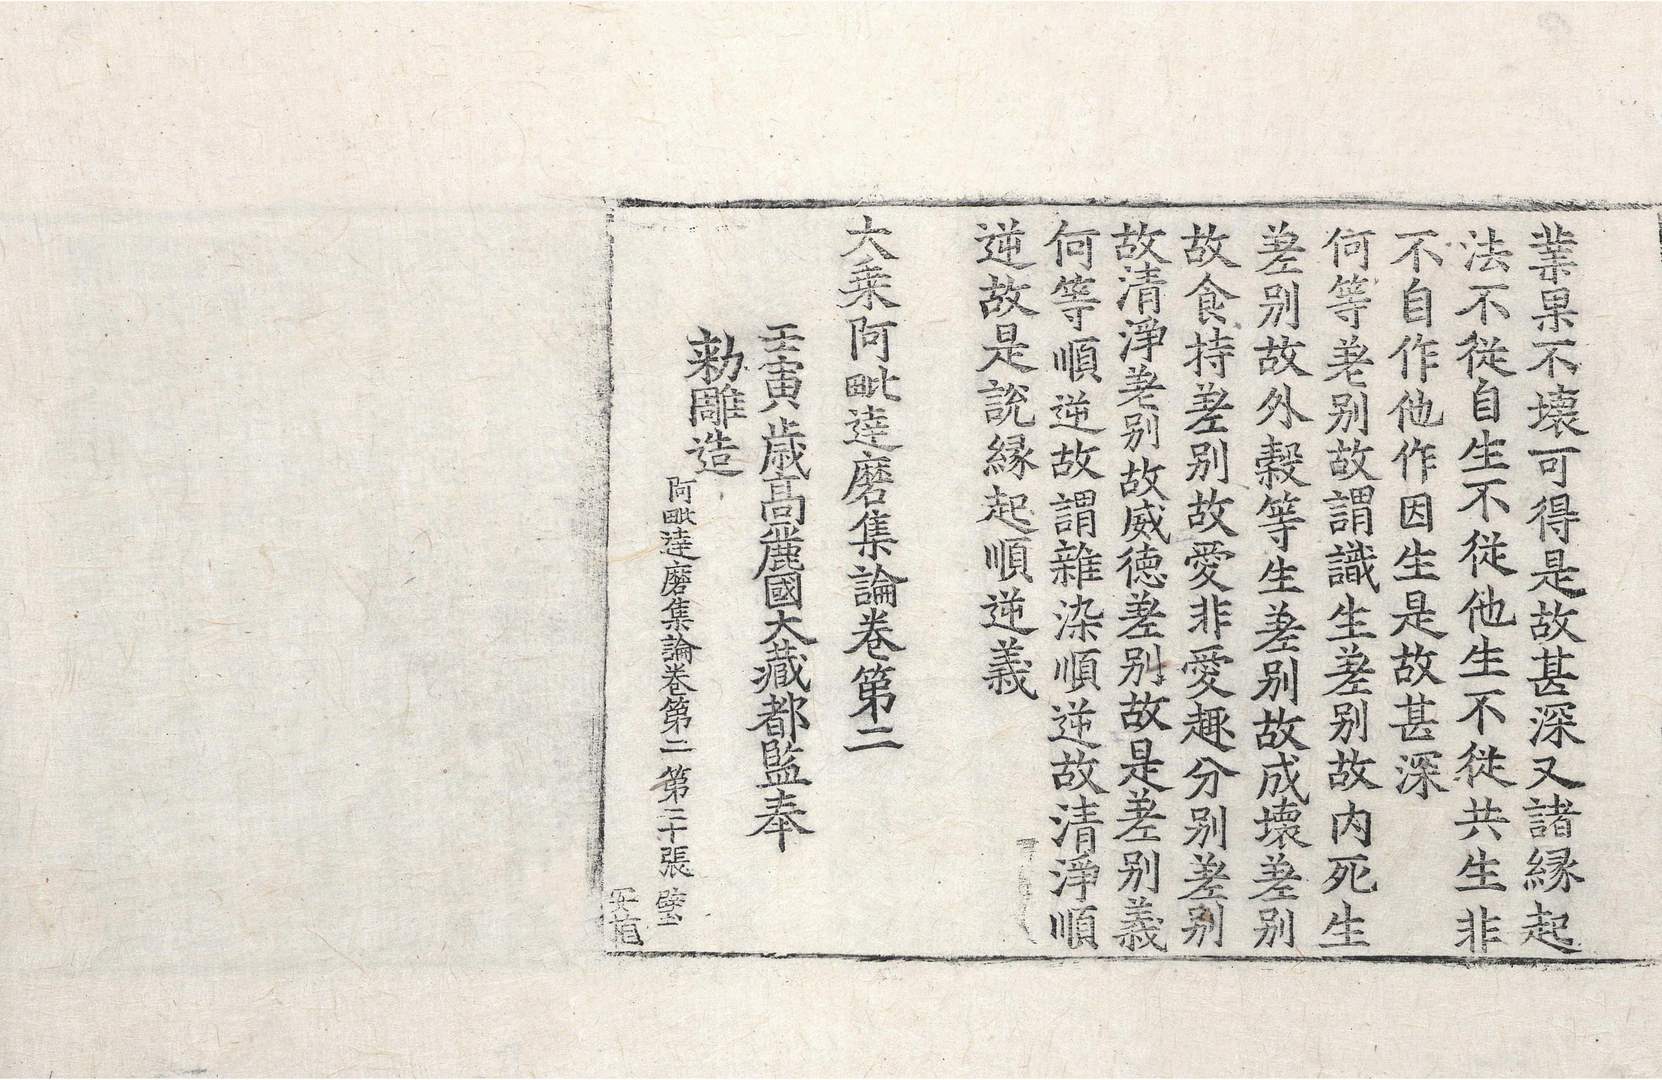 業果不壞可得是故甚深又諸緣起
法不從自生不從他生不從共生非
不自作他作因生是故甚深
何等差別故謂識生差別故內死生
差別故外穀等生差別故成壞差別
故食持差別故愛非愛趣分別差別
故清淨差別故威德差別故是差別義
何等順逆故謂雜染順逆故清淨順
逆故是說緣起順逆義
大乘阿毗達磨集論卷第二
壬寅歲高麗國大藏都監奉
勑雕造
阿毗達磨集論卷第二 第二十張 璧